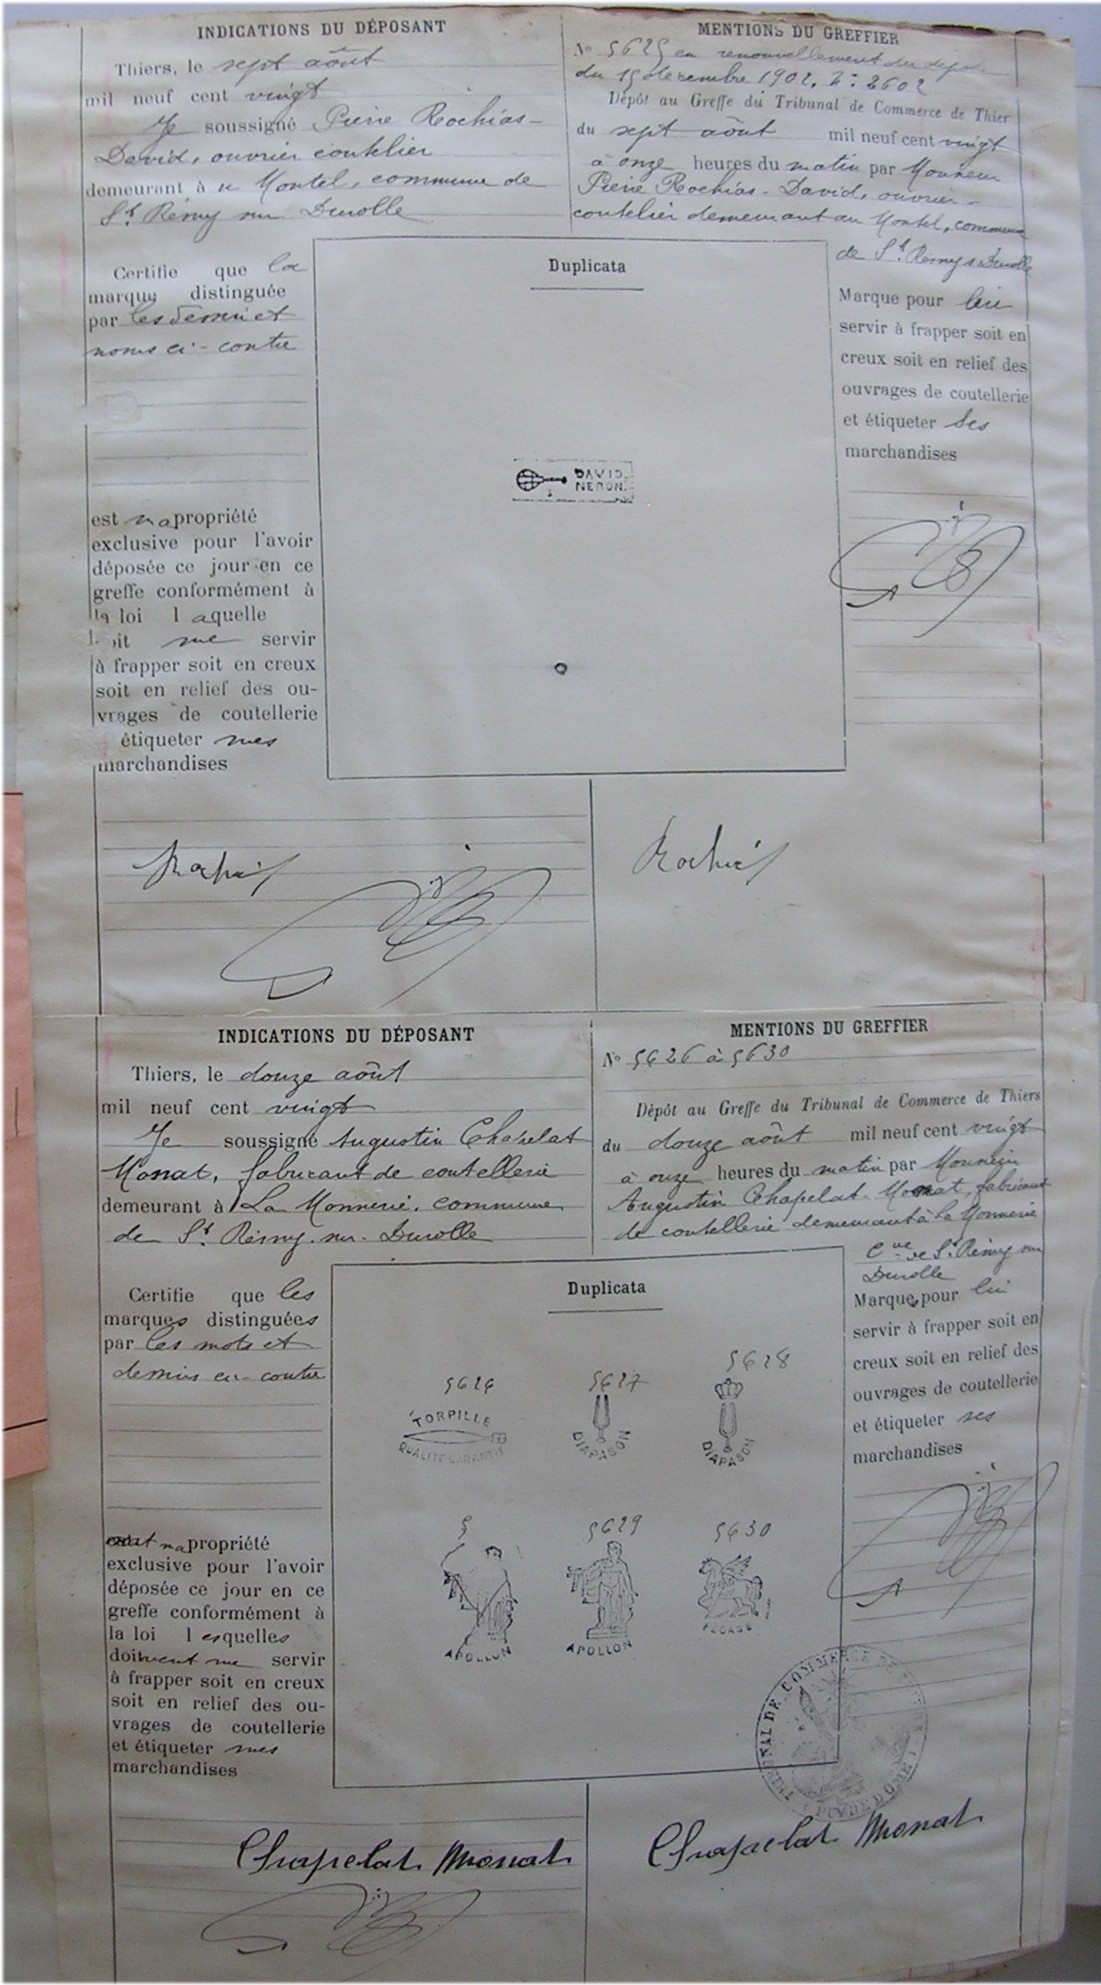 INDICATIONS DU DÉPOSANT
Thiers, le sept août
mil neuf cent vingt
Je soussigné Pierre Rochias-
David, ouvrier coutelier
demeurant à Montel, commune de
St Rémy sur Durolle
MENTIONS DU GREFFIER
No 5625 en renouvellement du dépôt
du 15 décembre 1902, No 2602
Dépôt au Greffe du Tribunal de Commerce de Thier
du sept août mil neuf cent vingt
à onze heures du matin par Monsieur
Pierre Rochias-David, ouvrier-
coutelier demeurant au Montel, commune
de St Rémy s Durolle
Certifie que la
marque distinguée
par les dessin et
noms ci-contre
est ma propriété
exclusive pour l'avoir
déposée ce jour en ce
greffe conformément à
la loi laquelle
doit me servir
à frapper soit en creux
soit en relief des ou-
vrages de coutellerie
étiqueter mes
marchandises
Duplicata
DAVID.
NERON.
Marque pour lui
servir à frapper soit en
creux soit en relief des
ouvrages de coutellerie
et étiqueter ses
marchandises
Rochias
Rochias
INDICATIONS DU DÉPOSANT
Thiers, le douze août
mil neuf cent vingt
Je soussigné Augustin Chapelat
Monat, fabricant de coutellerie
demeurant à La Monnerie, commune
de St Rémy-sur-Durolle
MENTIONS DU GREFFIER
No 5626 à 5630
Dépôt au Greffe du Tribunal de Commerce de Thiers
du douze août mil neuf cent vingt
à onze heures du matin par Monsieur
Augustin Chapelat-Monat, fabricant
de coutellerie demeurant à La Monnerie
Cne de St Rémy sur
Durolle
Certifie que les
marques distinguées
par les mots et
dessins ci-contre
ma propriété
exclusive pour l'avoir
déposée ce jour en ce
greffe conformément à
la loi lesquelles
doivent me servir
à frapper soit en creux
soit en relief des ou-
vrages de coutellerie
et étiqueter mes
marchandises
Duplicata
5626
TORPILLE
QUALITÉ GARANTIE
5627
DIAPASON
5628
DIAPASON
5
APOLLON
5629
APOLLON
5630
PEGASE
Marque pour lui
servir à frapper soit en
creux soit en relief des
ouvrages de coutellerie
et étiqueter ses
marchandises
TRIBUNAL DE COMMERCE DE THIERS
PUY DE DOME
Chapelat Monat
Chapelat Monat